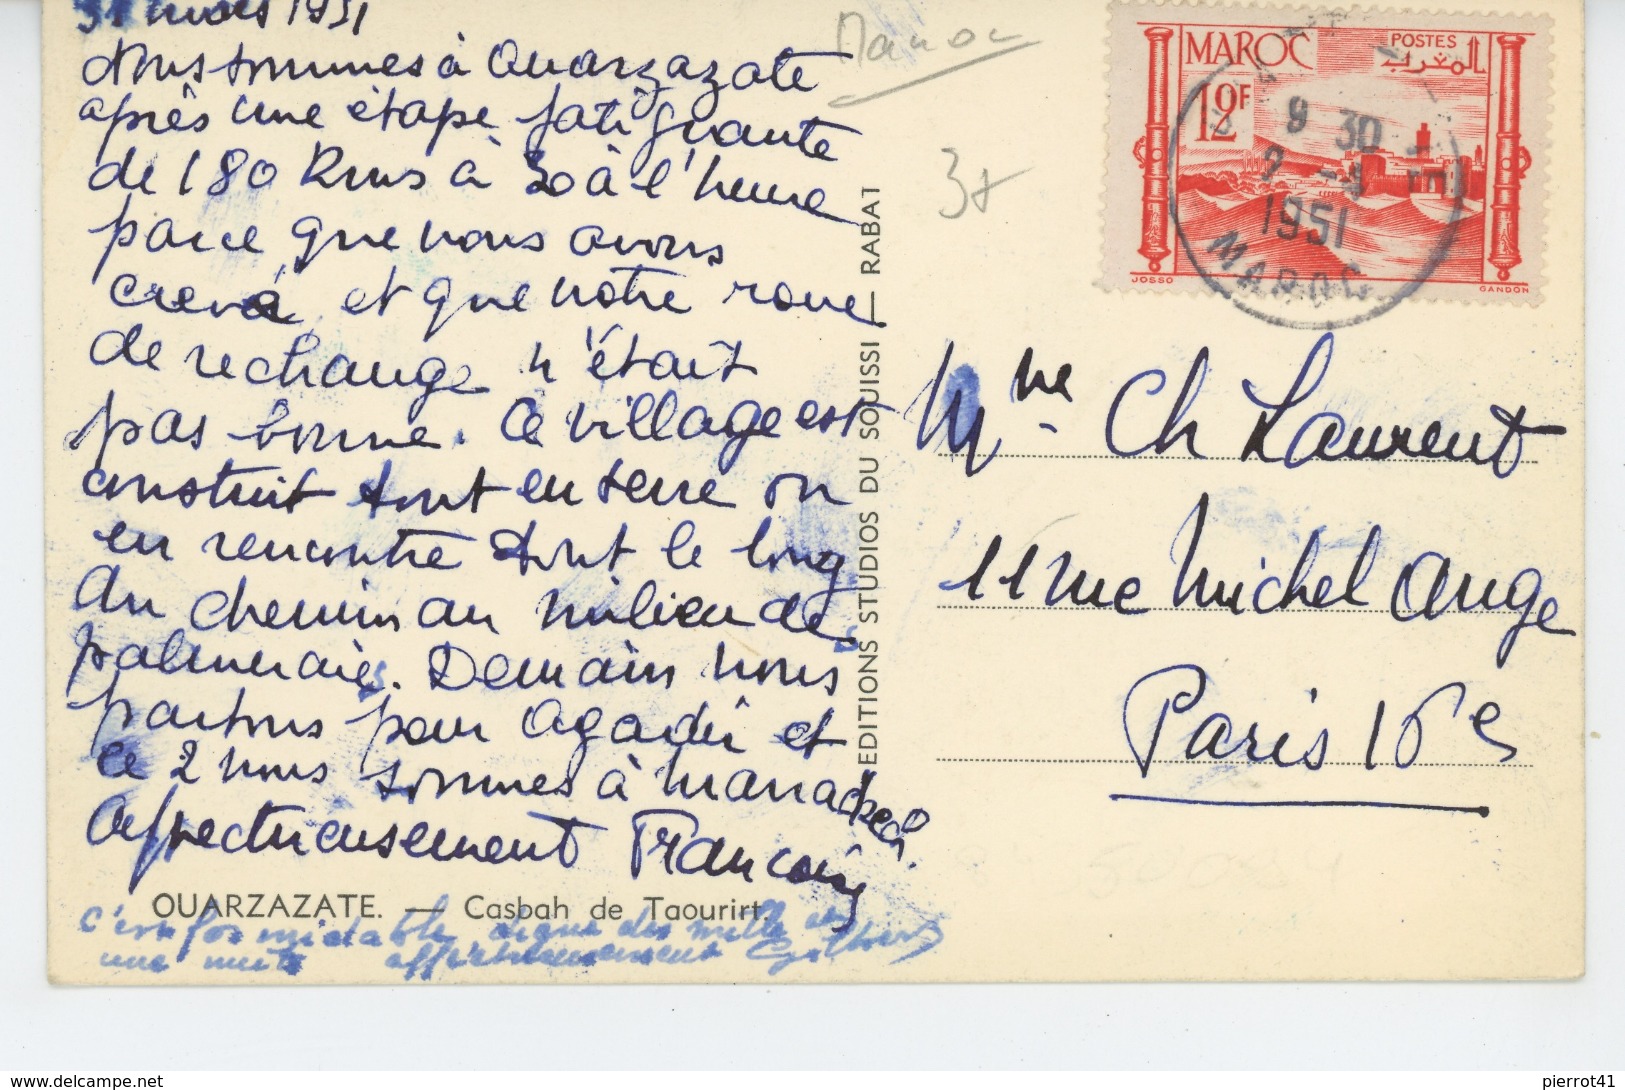 31 mars 1951
Nous sommes à Ouarzazate
après une étape fatiguante
de 180 Kms à 30 à l'heure
parce que nous avons
crevé et que notre roue
de rechange n'était
pas bonne. Ce village est
construit tout en terre on
en rencontre tout le long
du chemin au milieu de
palmeraies. Demain nous
partons pour Agadir et
le 2 nous sommes à Marrakech.
Affectueusement Françoise
OUARZAZATE. — Casbah de Taourirt.
C'est formidable digne des mille et
une nuits affectueusement Gilbert
EDITIONS STUDIOS DU SOUISSI - RABAT
Maroc
MAROC
POSTES
المغرب
12F
JOSSO
GANDON
9 30
2 -4
1951
MAROC
Mme Ch Laurent
11 rue Michel Ange
Paris 16e
pierrot41